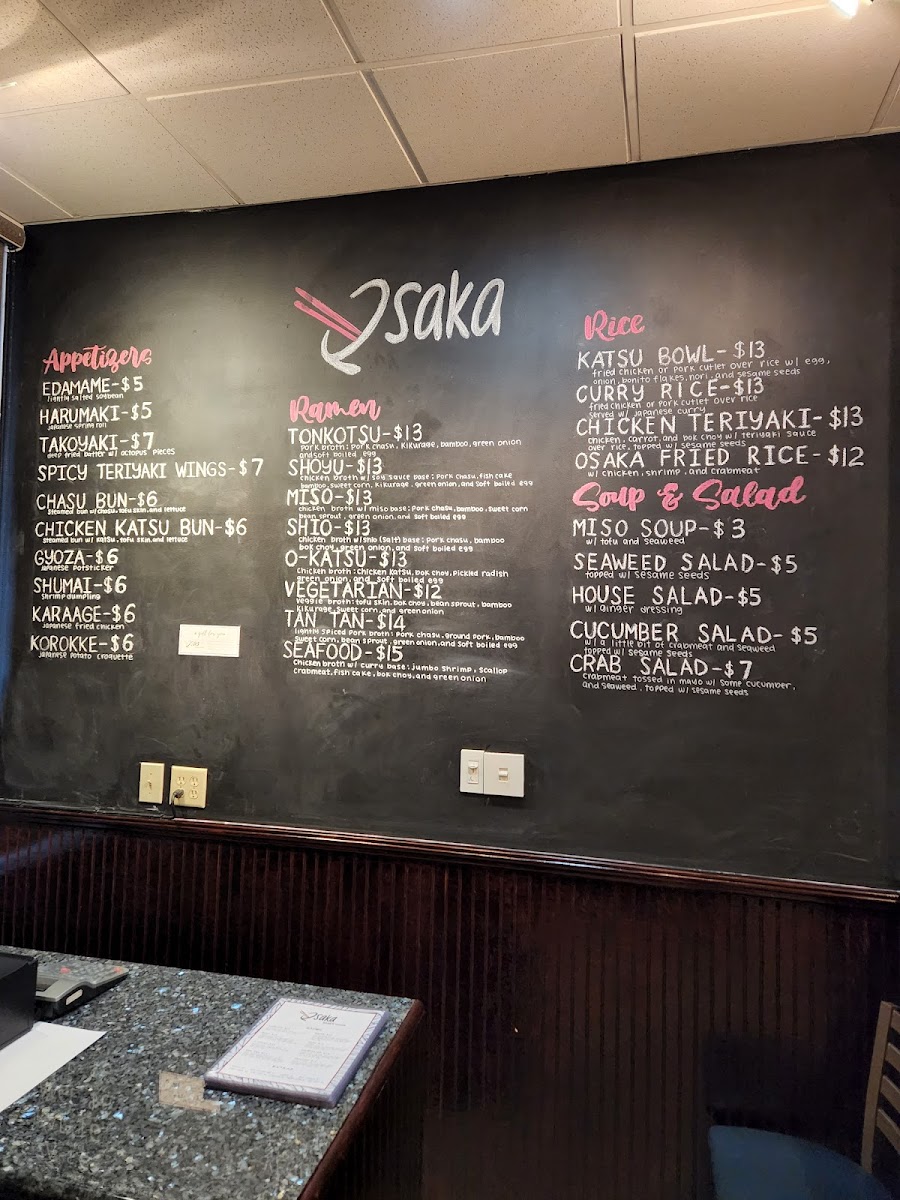 Osaka
Appetizers
EDAMAME-$5
lightly salted soybean
HARUMAKI-$5
Japanese spring roll
TAKOYAKI-$7
deep fried batter w/ octopus pieces
SPICY TERIYAKI WINGS-$7
CHASU BUN-$6
Steamed bun w/ chasu, tofu skin, and lettuce
CHICKEN KATSU BUN-$6
steamed bun w/ katsu, tofu skin, and lettuce
GYOZA-$6
Japanese Potsticker
SHUMAI-$6
Shrimp dumpling
KARAAGE-$6
Japanese fried chicken
KOROKKE-$6
Japanese Potato Croquette
Ramen
TONKOTSU-$13
pork broth: pork chasu, kikurage, bamboo, green onion
and soft boiled egg
SHOYU-$13
chicken broth w/ soy sauce base: pork chasu, fish cake
bamboo, sweet corn, kikurage, green onion, and soft boiled egg
MISO-$13
chicken broth w/ miso base: Pork chasu, bamboo, sweet corn
bean sprout, green onion, and soft boiled egg
SHIO-$13
chicken broth w/ shio (salt) base: pork chasu, bamboo
bok choy, green onion, and soft boiled egg
O-KATSU-$13
Chicken broth: Chicken katsu, bok choy, pickled radish
green onion, and soft boiled egg
VEGETARIAN-$12
veggie broth: tofu skin, bok choy, bean sprout, bamboo
kikurage, sweet corn, and green onion
TAN TAN-$14
lightly spiced pork broth: pork chasu, ground pork, bamboo
sweet corn, bean sprout, green onion, and soft boiled egg
SEAFOOD-$15
Chicken broth w/ curry base: jumbo shrimp, scallop
crabmeat, fish cake, bok choy, and green onion
Rice
KATSU BOWL-$13
fried chicken or pork cutlet over rice w/ egg,
onion, bonito flakes, nori, and sesame seeds
CURRY RICE-$13
fried chicken or pork cutlet over rice
served w/ Japanese curry
CHICKEN TERIYAKI-$13
chicken, carrot, and bok choy w/ teriyaki sauce
over rice, topped w/ sesame seeds
OSAKA FRIED RICE-$12
w/ chicken, shrimp, and crabmeat
Soup & Salad
MISO SOUP-$3
w/ tofu and seaweed
SEAWEED SALAD-$5
topped w/ sesame seeds
HOUSE SALAD-$5
w/ ginger dressing
CUCUMBER SALAD-$5
w/ a little bit of crabmeat and seaweed
topped w/ sesame seeds
CRAB SALAD-$7
crabmeat tossed in mayo w/ some cucumber,
and seaweed, topped w/ sesame seeds
Osaka